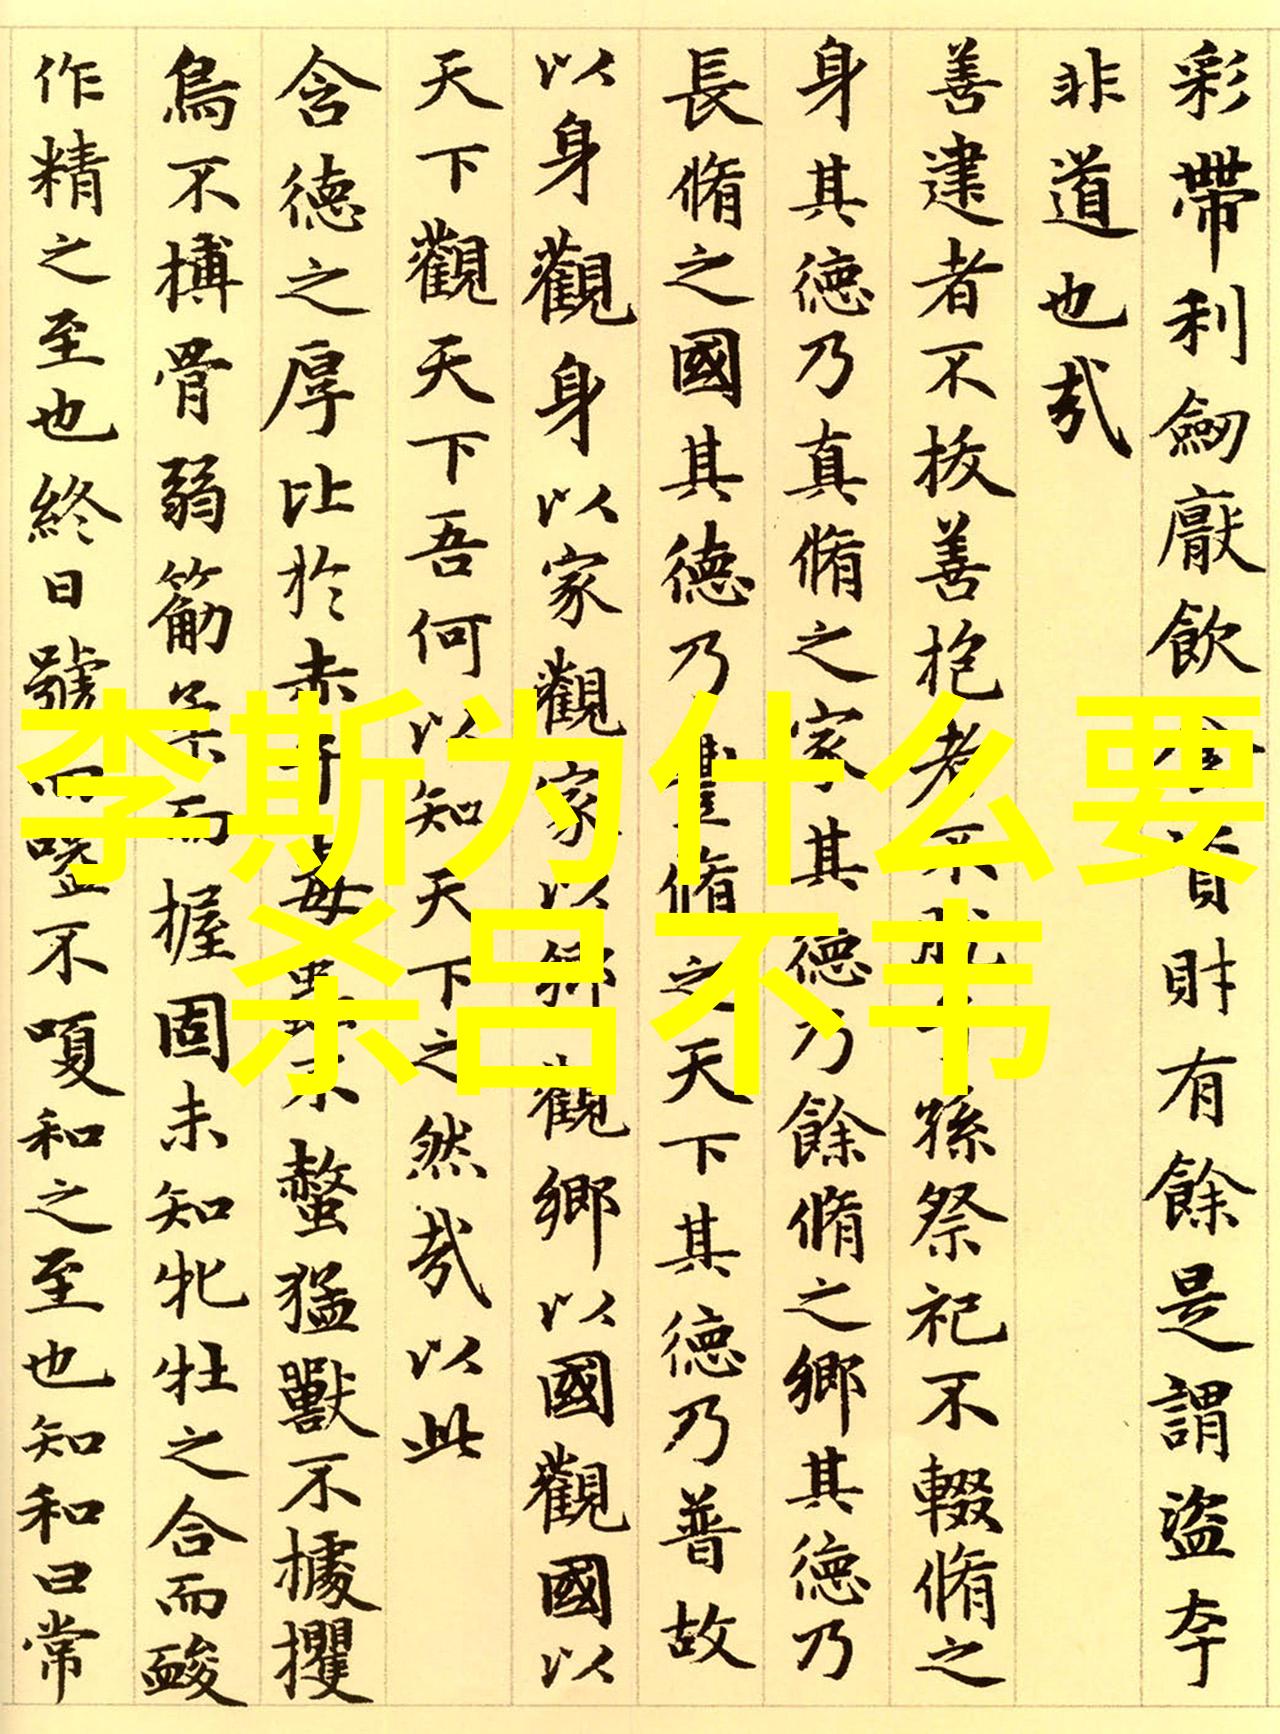 彩帶利劔厭飲食資財有餘是謂盜夸
非道也哉
善建者不拔善抱者不脫子孫祭祀不輟脩之
身其德乃真脩之家其德乃餘脩之鄉其德乃
長脩之國其德乃豐脩之天下其德乃普故
以身觀身以家觀家以鄉觀鄉以國觀國以
天下觀天下吾何以知天下之然哉以此
含德之厚比於赤子毒蟲不螫猛獸不據攫
鳥不搏骨弱筋柔而握固未知牝牡之合而酸
作精之至也終日號而嗌不嗄和之至也知和曰常
李斯为什么要
杀吕不韦